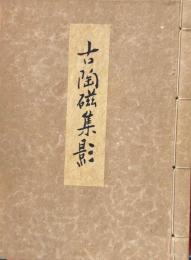 古陶磁集影